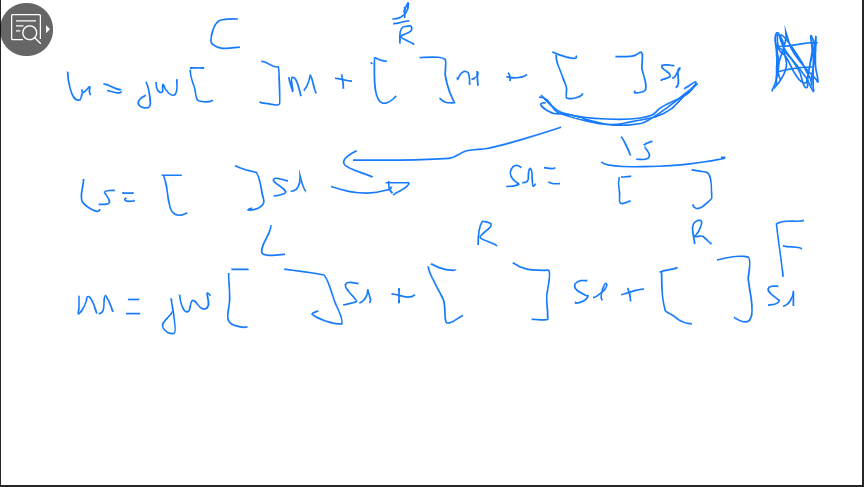 C 1/R
= jw [ ] n1 + [ ] n1 - [ ] s1
is = [ ] s1 s1 = is / [ ]
L R R F
n1 = jw [ ] s1 + [ ] s1 + [ ] s1